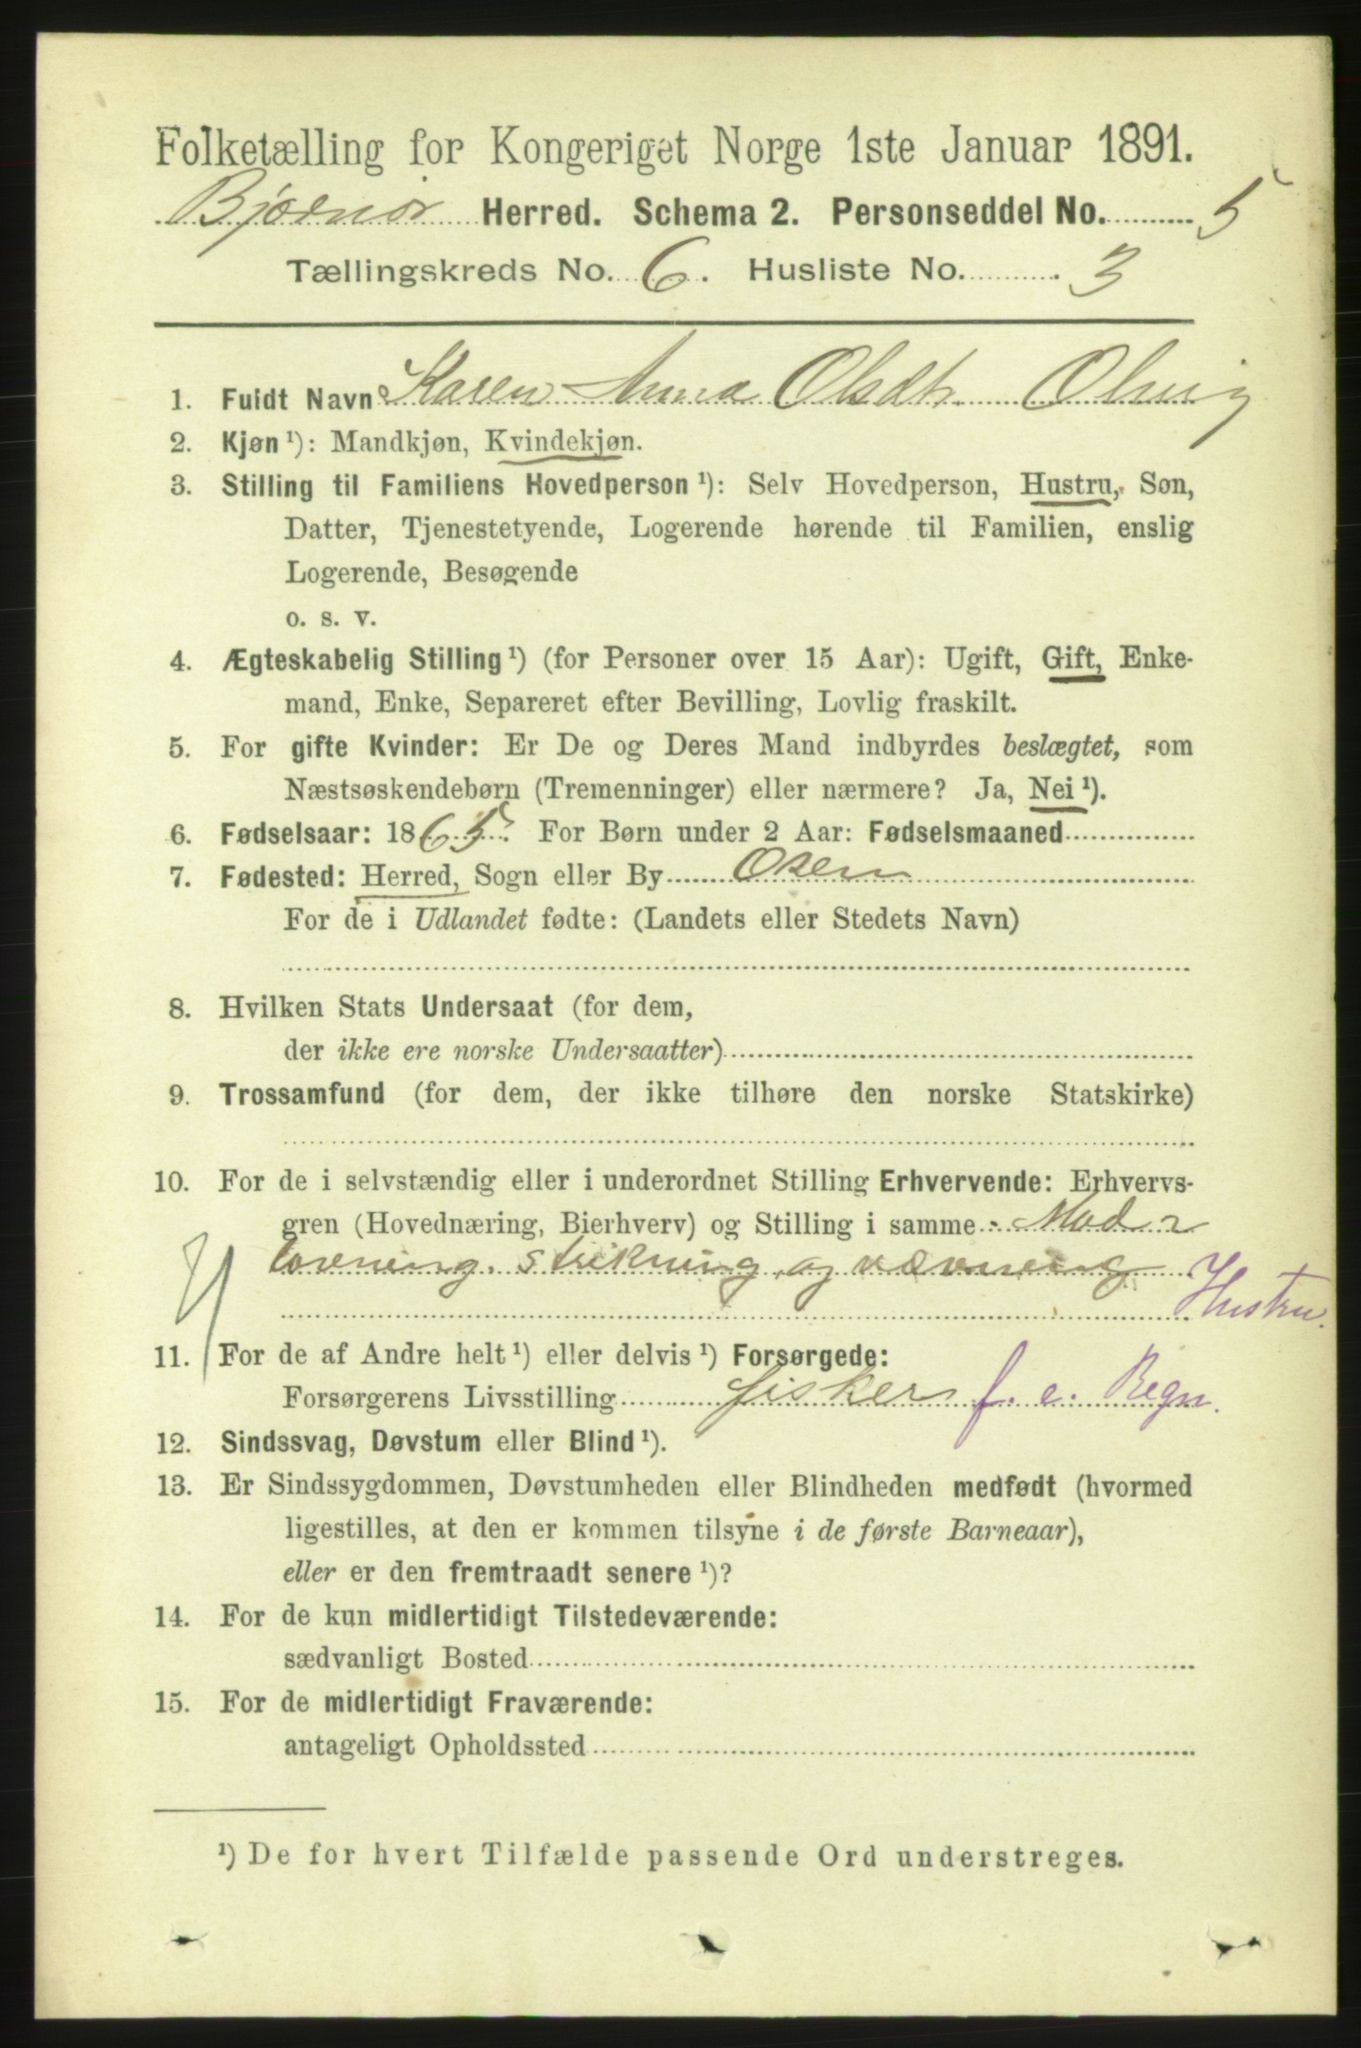 Folketælling for Kongeriget Norge 1ste Januar 1891.
Bjørnør Herred. Schema 2. Personseddel No. 5
Tællingskreds No. 6. Husliste No. 3
1. Fuldt Navn Karen Anna Olsdtr
2. Kjøn ¹): Mandkjøn, Kvindekjøn.
3. Stilling til Familiens Hovedperson ¹): Selv Hovedperson, Hustru, Søn,
Datter, Tjenestetyende, Logerende hørende til Familien, enslig
Logerende, Besøgende
o. s. v.
4. Ægteskabelig Stilling ¹) (for Personer over 15 Aar): Ugift, Gift, Enke-
mand, Enke, Separeret efter Bevilling, Lovlig fraskilt.
5. For gifte Kvinder: Er De og Deres Mand indbyrdes beslægtet, som
Næstsøskendebørn (Tremenninger) eller nærmere? Ja, Nei ¹).
6. Fødselsaar: 1865. For Børn under 2 Aar: Fødselsmaaned
7. Fødested: Herred, Sogn eller By Osen
For de i Udlandet fødte: (Landets eller Stedets Navn)
8. Hvilken Stats Undersaat (for dem,
der ikke ere norske Undersaatter)
9. Trossamfund (for dem, der ikke tilhøre den norske Statskirke)
10. For de i selvstændig eller i underordnet Stilling Erhvervende: Erhvervs-
gren (Hovednæring, Bierhverv) og Stilling i samme Mad
lavning. strikning og vævning
Hustru.
11. For de af Andre helt ¹) eller delvis ¹) Forsørgede:
Forsørgerens Livsstilling fisker f. e. Regn.
12. Sindssvag, Døvstum eller Blind ¹).
13. Er Sindssygdommen, Døvstumheden eller Blindheden medfødt (hvormed
ligestilles, at den er kommen tilsyne i de første Barneaar),
eller er den fremtraadt senere ¹)?
14. For de kun midlertidigt Tilstedeværende:
sædvanligt Bosted
15. For de midlertidigt Fraværende:
antageligt Opholdssted
¹) De for hvert Tilfælde passende Ord understreges.